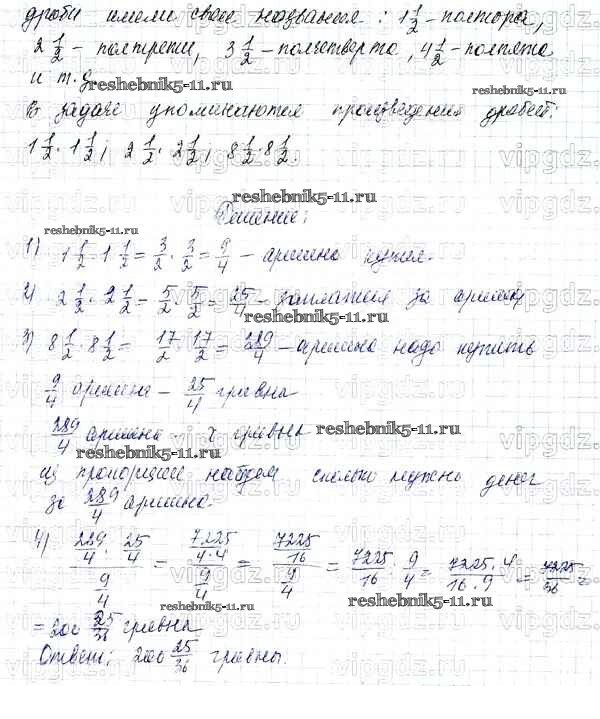 дроби имели свои названия: 1 1/2 - полтора,
2 1/2 - полтрети, 3 1/2 - полчетверта, 4 1/2 - полпята
и т.д.
reshebnik5-11.ru
В задаче упоминаются произведения дробей:
1 1/2 · 1 1/2; 2 1/2 · 2 1/2; 8 1/2 · 8 1/2.
reshebnik5-11.ru
Решение:
reshebnik5-11.ru
1) 1 1/2 · 1 1/2 = 3/2 · 3/2 = 9/4 - аршина купил.
2) 2 1/2 · 2 1/2 = 5/2 · 5/2 = 25/4 - заплатил за аршины
reshebnik5-11.ru
3) 8 1/2 · 8 1/2 = 17/2 · 17/2 = 289/4 - аршина надо купить
9/4 аршина - 25/4 гривна
289/4 аршина - x гривны
reshebnik5-11.ru
reshebnik5-11.ru
из пропорции найдем сколько нужно денег
за 289/4 аршина.
4) (289/4 · 25/4)/(9/4) = (7225/4·4)/(9/4) = (7225/16)/(9/4) = 7225/16 : 9/4 = 7225·4/16·9 = 7225/36 =
reshebnik5-11.ru
reshebnik5-11.ru
= 200 25/36 гривна
Ответ: 200 25/36 гривны.